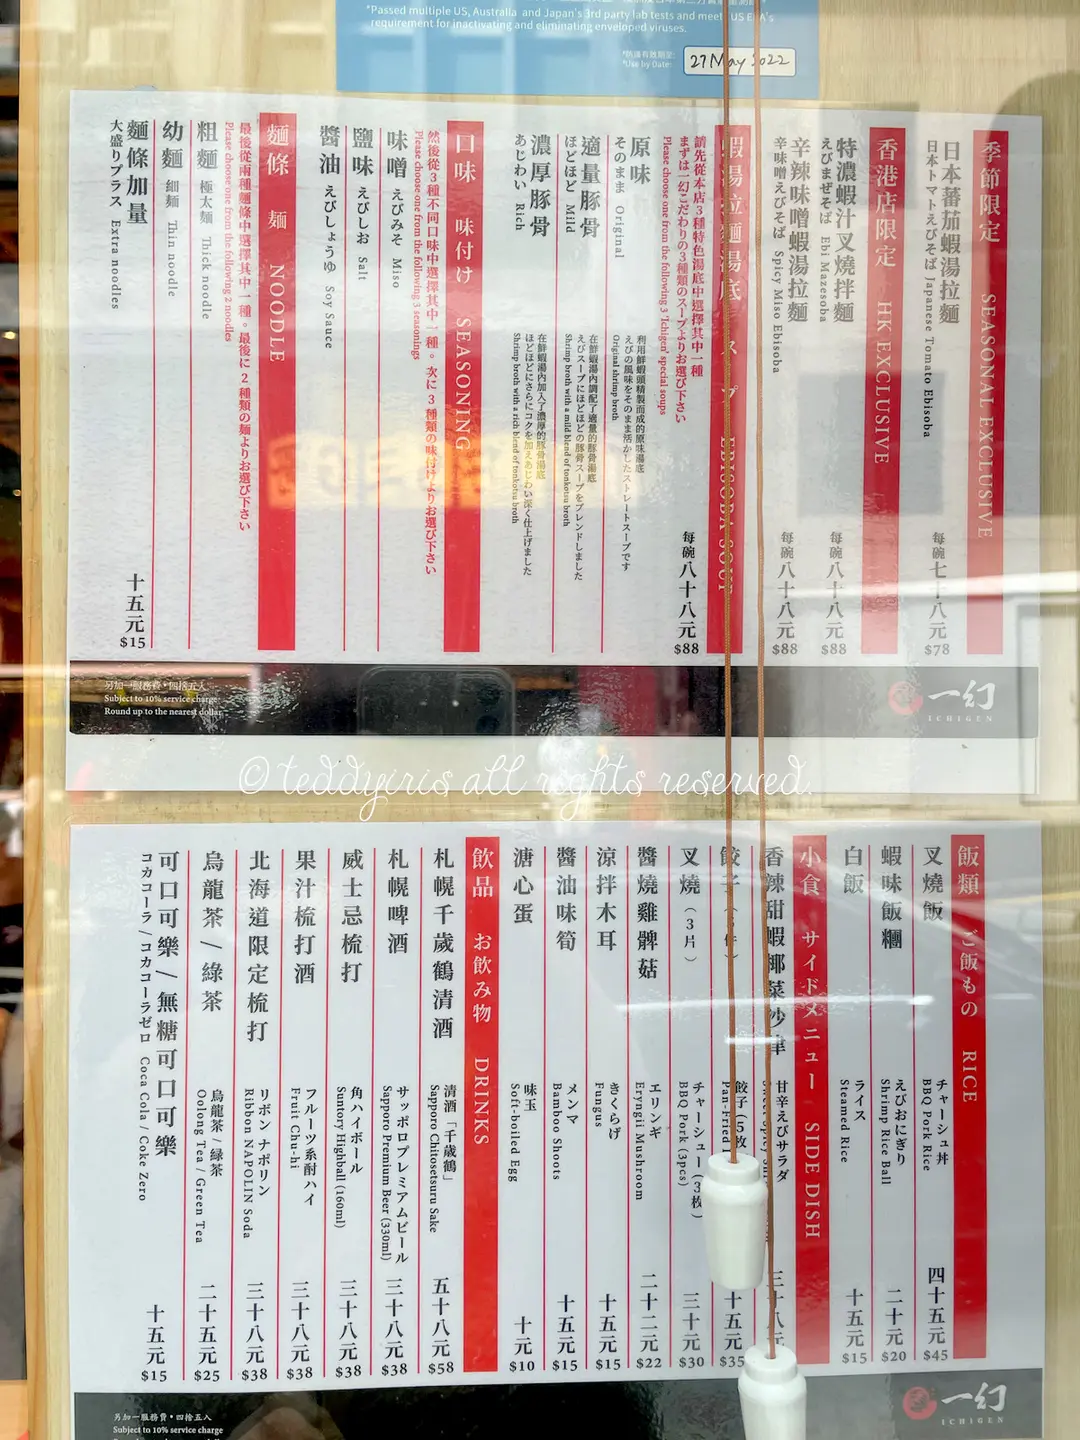 *Passed multiple US, Australia and Japan's 3rd party lab tests and meets US EPA's
requirement for inactivating and eliminating enveloped viruses.
*Use by Date:
27 May 2022
季節限定 SEASONAL EXCLUSIVE
日本蕃茄蝦湯拉麵
日本トマトえびそば Japanese Tomato Ebisoba
每碗七十八元
$78
香港店限定 HK EXCLUSIVE
特濃蝦汁叉燒拌麵
えびまぜそば Ebi Mazesoba
每碗八十八元
$88
辛辣味噌蝦湯拉麵
辛味噌えびそば Spicy Miso Ebisoba
每碗八十八元
$88
蝦湯拉麵湯底 スープ EBISOBA SOUP
請先從本店3種特色湯底中選擇其中一種
まずは一幻こだわりの3種類のスープよりお選び下さい
Please choose one from the following 3 'Ichigen' special soups
每碗八十八元
$88
原味
そのまま Original
利用鮮蝦頭精製而成的原味湯底
えびの風味をそのまま活かしたストレートスープです
Original shrimp broth
適量豚骨
ほどほど Mild
在鮮蝦湯內調配了適量的豚骨湯底
えびスープにほどほどの豚骨スープをブレンドしました
Shrimp broth with a mild blend of tonkotsu broth
濃厚豚骨
あじわい Rich
在鮮蝦湯內加入了濃厚的豚骨湯底
ほどほどにさらにコクを加えあじわい深く仕上げました
Shrimp broth with a rich blend of tonkotsu broth
口味 味付け SEASONING
然後從3種不同口味中選擇其中一種。次に3種類の味付けよりお選び下さい
Please choose one from the following 3 seasonings
味噌 えびみそ Miso
鹽味 えびしお Salt
醬油 えびしょうゆ Soy Sauce
麵條 麺 NOODLE
最後從兩種麵條中選擇其中一種。最後に2種類の麺よりお選び下さい
Please choose one from the following 2 noodles
粗麵 極太麺 Thick noodle
幼麵 細麺 Thin noodle
麵條加量
大盛りプラス Extra noodles
十五元
$15
另加一服務費・四捨五入
Subject to 10% service charge
Round up to the nearest dollar
一幻
ICHIGEN
© teddyiris all rights reserved.
飯類 ご飯もの RICE
叉燒飯
チャーシュ丼
BBQ Pork Rice
四十五元
$45
蝦味飯糰
えびおにぎり
Shrimp Rice Ball
二十元
$20
白飯
ライス
Steamed Rice
十五元
$15
小食 サイドメニュー SIDE DISH
香辣甜蝦椰菜沙律
甘辛えびサラダ
三十八元
餃子
餃子(5枚
Pan-Fried
十五元
$35
叉燒(3片)
チャーシュー(3枚)
BBQ Pork (3pcs)
三十元
$30
醬燒雞髀菇
エリンギ
Eryngii Mushroom
二十二元
$22
涼拌木耳
きくらげ
Fungus
十五元
$15
醬油味筍
メンマ
Bamboo Shoots
十五元
$15
溏心蛋
味玉
Soft-boiled Egg
十元
$10
飲品 お飲み物 DRINKS
札幌千歲鶴清酒
清酒「千歳鶴」
Sapporo Chitosetsuru Sake
五十八元
$58
札幌啤酒
サッポロプレミアムビール
Sapporo Premium Beer (330ml)
三十八元
$38
威士忌梳打
角ハイボール
Suntory Highball (160ml)
三十八元
$38
果汁梳打酒
フルーツ系酎ハイ
Fruit Chu-hi
三十八元
$38
北海道限定梳打
リボン ナポリン
Ribbon NAPOLIN Soda
三十八元
$38
烏龍茶/綠茶
烏龍茶/緑茶
Oolong Tea / Green Tea
二十五元
$25
可口可樂/無糖可口可樂
コカコーラ/コカコーラゼロ Coca Cola / Coke Zero
十五元
$15
另加一服務費・四捨五入
Subject to 10% service charge
一幻
ICHIGEN